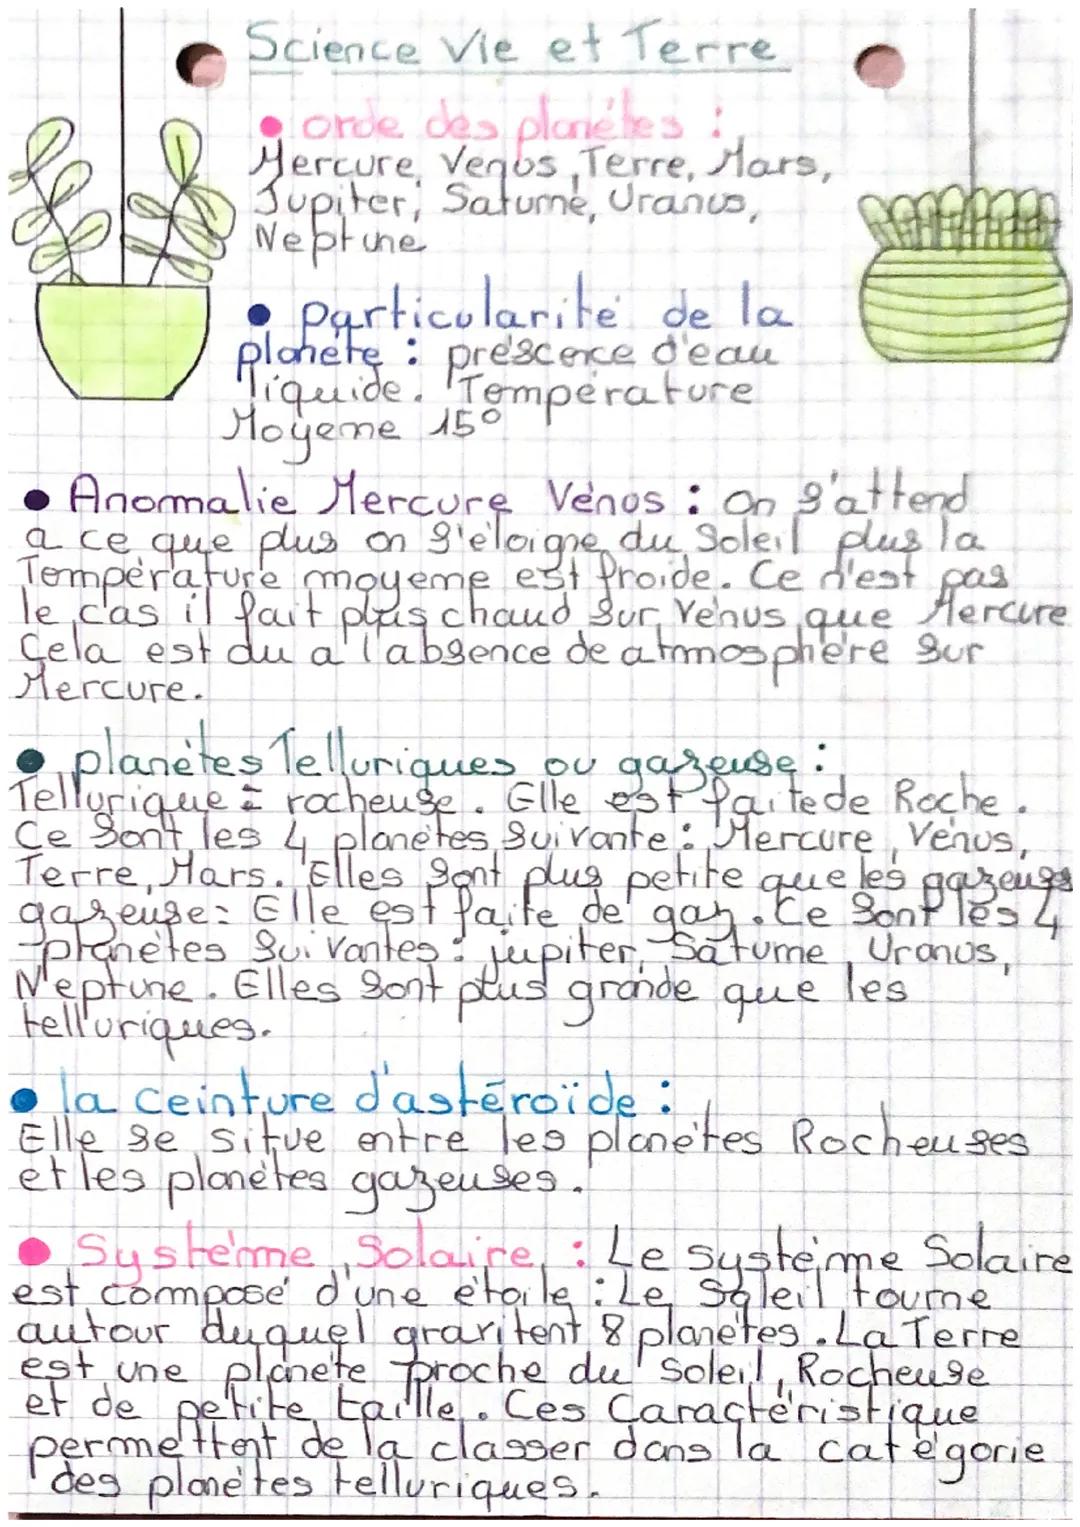 Science Vie et Terre
• orde des planètes :
Mercure, Venus, Terre, Mars,
Jupiter, Saturne, Uranus,
Neptune
• Particularité de la
planète : préscence d'eau
liquide. Température
Moyenne 15°
• Anomalie Mercure Vénus : On s'attend
a ce que plus on s'éloigne du Soleil plus la
Température moyenne est froide. Ce n'est pas
le cas il fait plus chaud sur Vénus que Mercure
Cela est du a l'absence de atmosphère sur
Mercure.
• planètes Telluriques ou gazeuse :
Tellurique = rocheuse. Elle est faite de Roche.
Ce sont les 4 planètes suivante : Mercure, Vénus,
Terre, Mars. Elles sont plus petite que les gazeuses
gazeuse = Elle est faite de gaz. Ce sont les 4
planètes suivantes : jupiter, Saturne, Uranus,
Neptune. Elles sont plus grande que les
telluriques.
• la ceinture d'astéroïde :
Elle se situe entre les planètes Rocheuses
et les planètes gazeuses.
• Système Solaire : Le système Solaire
est composé d'une étoile : Le Soleil tourne
autour duquel gravitent 8 planètes. La Terre
est une planète proche du soleil, Rocheuse
et de petite taille. Ces Caractéristique
permettent de la classer dans la catégorie
des planètes telluriques.